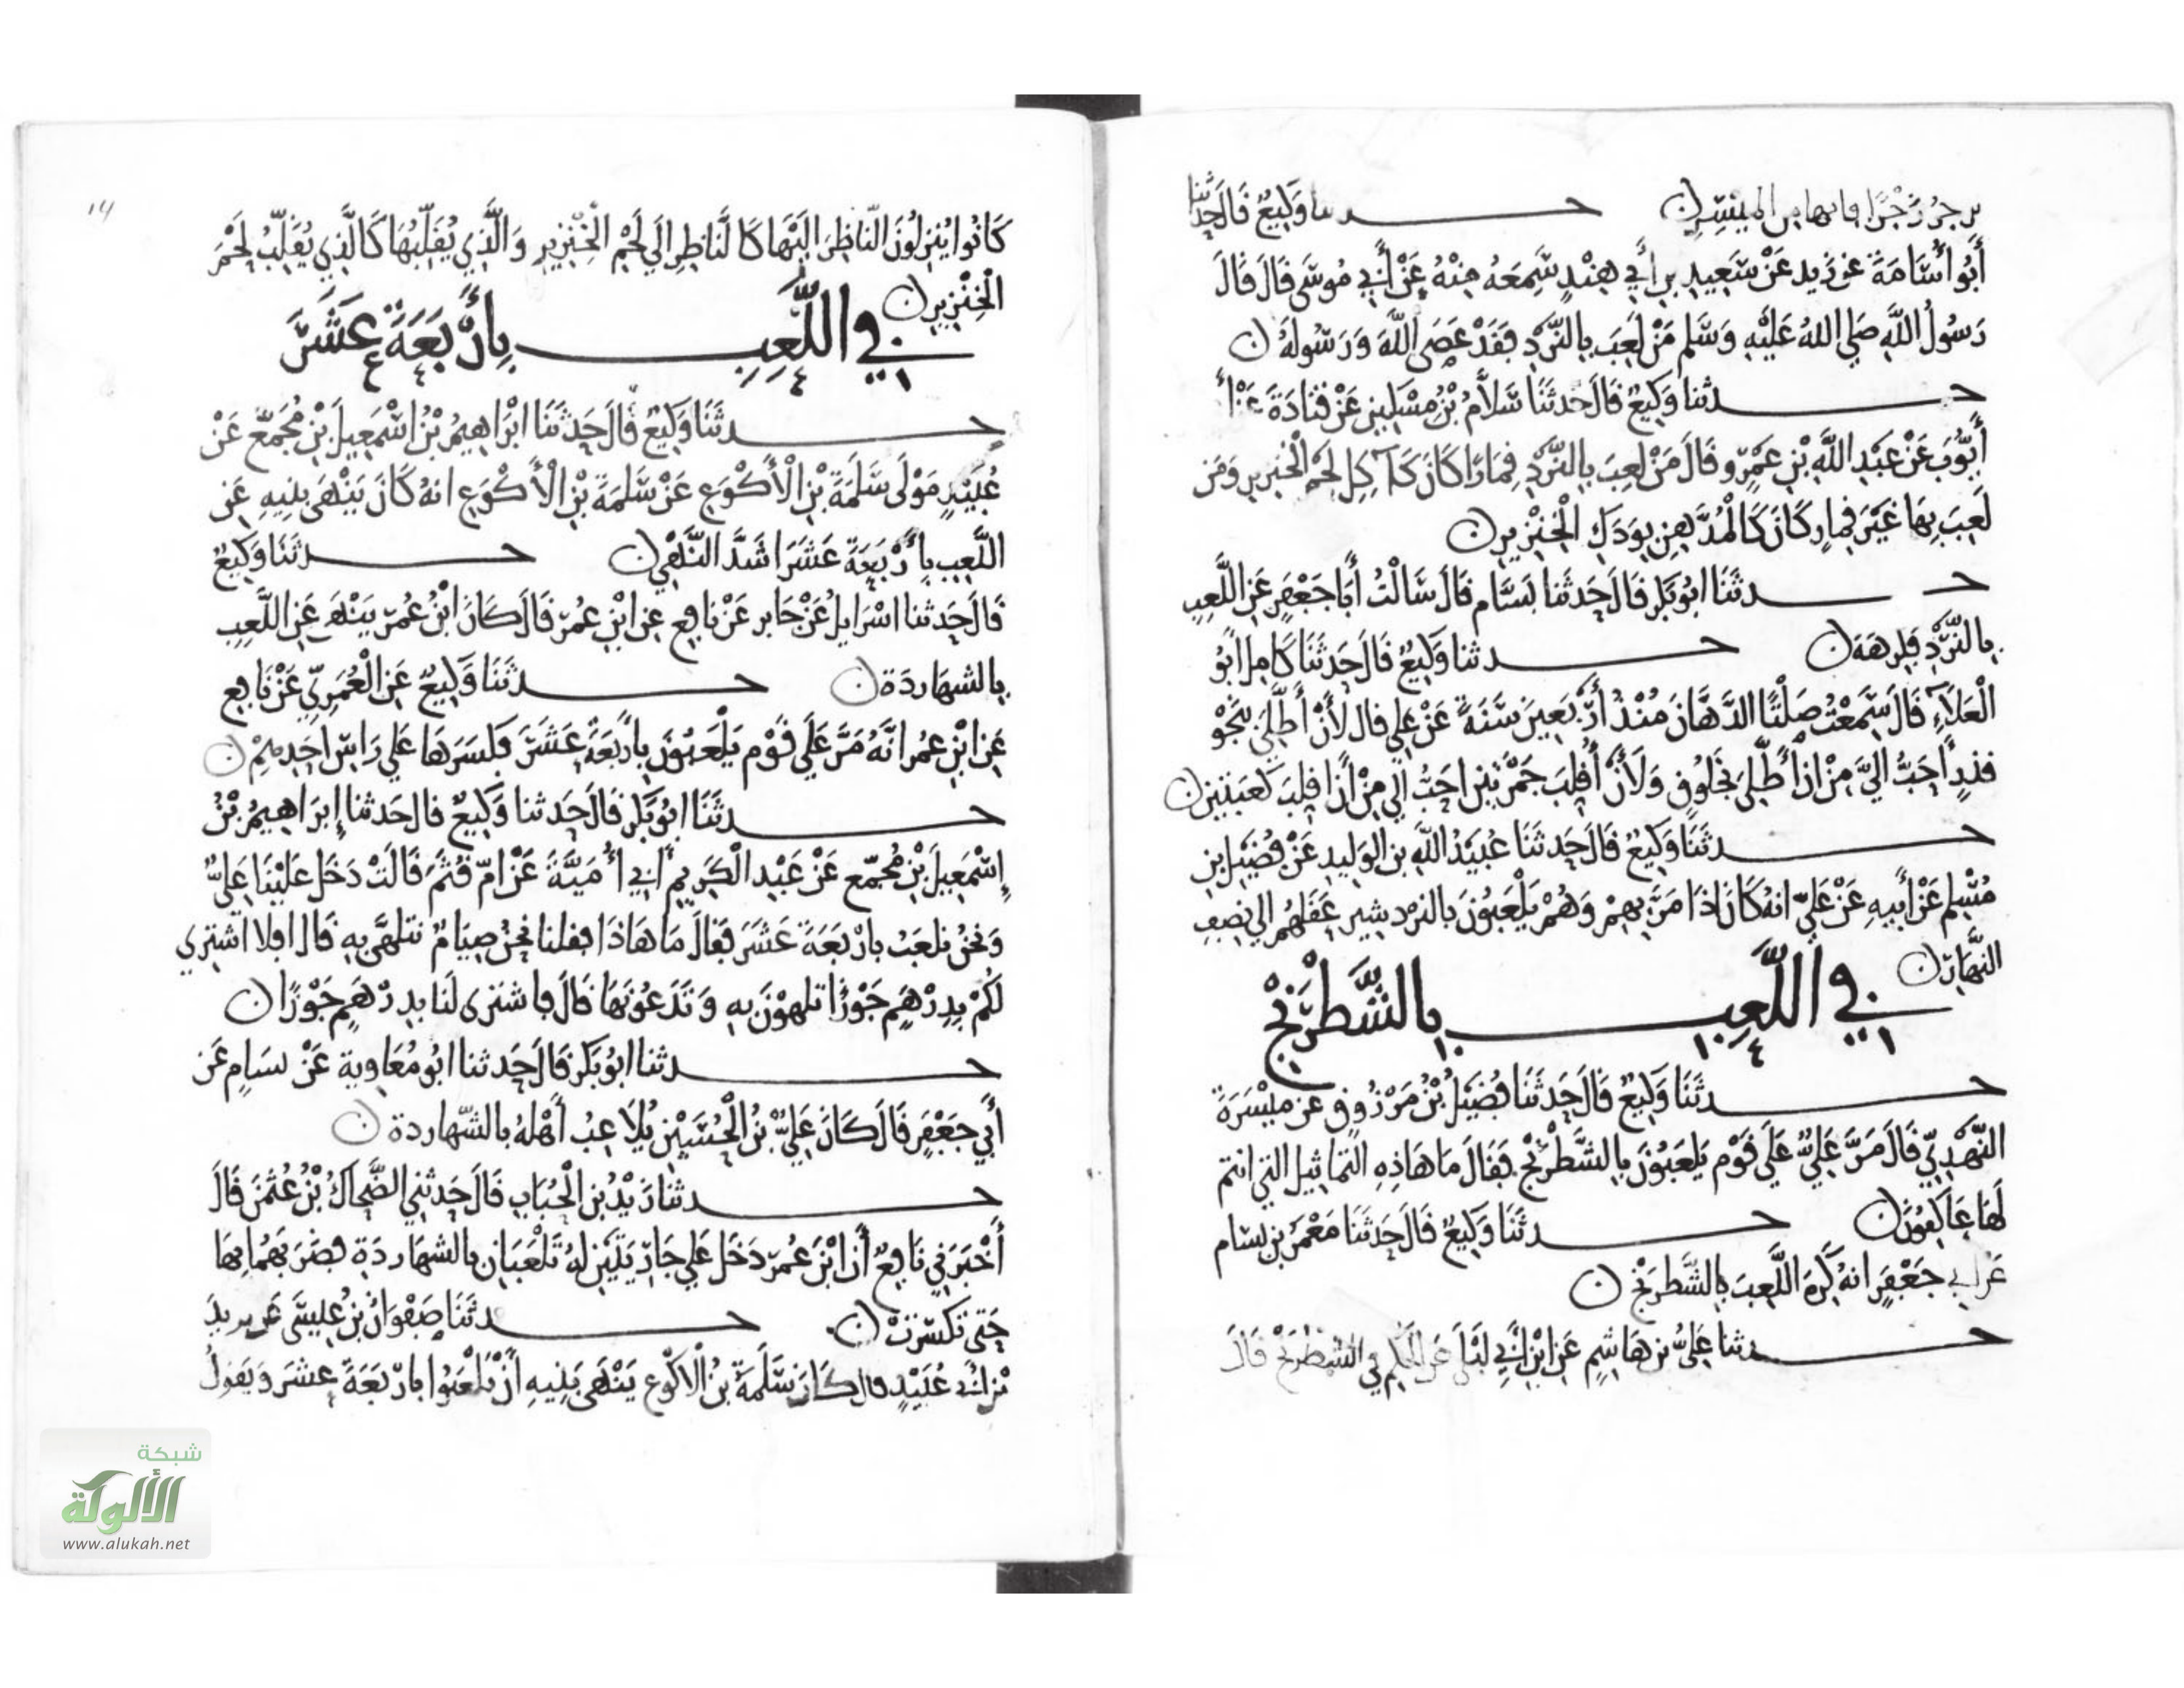 يزجران زجرا فانها من الميسر حدثنا وكيع قال حدثنا
أَبُو أُسَامَةَ عن زيد عَنْ سَعِيدِ بن أَبِي هِنْدٍ سَمِعَهُ مِنْهُ عَنْ أَبِي مُوسَى قَالَ قَالَ
رَسُولُ اللَّهِ صَلى اللهُ عَلَيْهِ وَسَلم مَنْ لَعِبَ بِالنَّرْدِ فَقَدْ عَصَى اللَّهَ وَرَسُولَهُ
حدثنا وَكِيعٌ قَالَ حَدثَنَا سَلَّامُ بْنُ مِسْكِينٍ عَنْ قتَادَةَ عَنْ أ
أَيُّوبَ عَنْ عَبْدِ اللَّهِ بْنِ عَمْرٍو قَالَ مَنْ لَعِبَ بِالنَّرْدِ قِمَارًا كَانَ كَآكِلِ لَحْمِ الْخنزير وَمَن
لَعِبَ بِهَا غَيْرَ قِمارٍ كَانَ كَالْمُدَّهِنِ بِوَدَكِ الْخِنْزِيرِ
حدثَنَا ابُو بَكْرٍ قَالَ حَدثَنَا بَسَّام قَالَ سَالْتُ أَبَا جَعْفَرٍ عَنِ اللَّعِبِ
بِالنَّرْدِ فكرهَهُ حدثنا وَكِيعٌ قَالَ حَدثَنَا كَامِل ابُو
الْعَلَاءِ قَالَ سَمِعْتُ صَلْتًا الدَّهَّانَ مُنْذُ أَرْبَعِينَ سَنَةً عَنْ علي قال لَأَنْ أَطَّلِيَ بِجَوْ
قذرٍ أَحَبُّ إلَيَّ مِنْ ان أَطَّلِيَ بِخَلُوقٍ وَلَأَنْ أُقلِبَ جَمْرَتين احَبُّ إلَي مِنْ أَن اقلِبَ كَعبَتين
حدثَنَا وَكِيعٌ قَالَ حَدثَنَا عُبَيْدُ اللَّهِ بن الوَلِيدِ عَنْ فُضَيْلِ بنِ
مُسْلِم عَنْ أَبِيهِ عَنْ عَلِيّ انهُ كَانَ اذَا مَرَّ بِهِمْ وَهُمْ يَلْعَبُونَ بالنرد شير عَقَلَهُم إلى نِصْفِ
النهَار
فِي اللَّعِبِ بِالشَّطْرَنْجِ
حدثَنَا وَكِيعٌ قَالَ حَدثَنَا فُضَيْلُ بْنُ مَرْزُوقٍ عن مَيْسَرَةَ
النَّهْدِيِّ قَالَ مَرَّ عَلِيٌّ عَلَى قَوْمٍ يَلعَبُونَ بِالشَّطْرَنْجِ فَقَالَ مَا هَاذِهِ التَمَاثِيل التي انتم
لَهَا عَاكِفُونَ حدثَنَا وَكِيعٌ قَالَ حَدثَنَا مَعْمَرُ بن بسام
عَن ابي جَعْفَرٍ انهُ كَرِهَ اللَّعِبَ بِالشَّطرَنجِ
حدثنا عَلِيُّ بن هَاشِمٍ عَنِ ابْنِ ابي لَيْلَى عَن الحكم في الشطرنج قَالَ
١٩
كَانُوا يُنزِلُونَ النَّاظِرَ الَيْهَا كَالنَّاظِرِ الَى لَحْمِ الْخِنزِيرِ وَالَّذِي يُقَلِّبُهَا كَالَّذِي يُقَلِّبُ لَحْمَ
الْخِنْزِيرِ
فِي اللَّعِبِ بِأَرْبَعَةَ عَشَرَ
حدثَنَا وَكِيعٌ قَالَ حَدثَنَا ابْرَاهِيمُ بْنُ اسْمَعِيلَ بْنِ مُجَمِّع عَنْ
عُبَيْدٍ مَوْلَى سَلَمَةَ بْنِ الْأَكْوَعِ عَنْ سَلَمَةَ بْنِ الْأَكْوَعِ انهُ كَانَ يَنْهَى بَنِيهِ عَن
اللَّعِبِ بِأَرْبَعَةَ عَشَرَ اشَدَّ النَّهْيِ حدثَنَا وَكِيعٌ
قَالَ حَدثنا اسْرَايِلُ عَنْ جَابر عَنْ نافِع عن ابْنِ عُمَرَ قَالَ كَانَ ابْنُ عُمَرَ يَنْهَى عَنِ اللَّعِبِ
بِالشهَاردَة حدثَنَا وَكِيعٌ عَنِ الْعُمَرِيِّ عَنْ نَافِع
عَنِ ابْنِ عمُر انَّهُ مَرَّ عَلَى قَوْم يَلْعَبُونَ بِأَرْبَعَةَ عَشَرَ فَكَسَرَهَا عَلَى رَاسِ احَدِهِمْ
حدثَنَا ابُو بَكْرٍ قَالَ حَدثنا وَكِيعٌ قال حَدثنا إِبرَاهِيمُ بْنُ
إِسْمَعِيلَ بْنِ مُجَمِّع عَنْ عَبْدِ الْكَرِيمِ أَبِي أُمَيَّةَ عَنْ امّ قُثَم قَالَتْ دَخَلَ عَلَيْنَا عَلِيٌّ
وَنَحْنُ نلعَبُ بارْبَعَةَ عَشَرَ فَقَالَ مَا هَاذَا فقلنا نحنُ صِيَامٌ نتلهَّى بِهِ قَال افلا اشتري
لَكُمْ بِدِرْهَمٍ جَوْزًا تلهوْنَ بِهِ وَتَدَعُونَهَا قَالَ فاشترى لَنَا بدرْهَمٍ جَوْزًا
حدثنا ابُو بَكْرٍ قَالَ حَدثنا ابُو مُعَاوِية عَنْ بسَامٍ عَن
أَبِي جَعْفَرٍ قَالَ كَانَ عَلِيُّ بْنُ الْحُسَيْنِ يُلَاعِبُ أَهْلَهُ بالشَّهاردة
حدثنا زَيْدُ بن الْحُبَابِ قَالَ حَدثنِي الضَّحَّاكُ بْنُ عُثْمَنَ قَالَ
أَخْبَرَنِي نَافِعٌ أَنَّ ابْنَ عُمَرَ دَخَلَ عَلَى جَارِيَتَيْنِ لهُ تَلْعَبَانِ بالشهَاردَةِ فضَرَبَهُمَا بِهَا
حَتى تكسّرَتْ حدثَنَا صَفْوَانُ بْنُ عِيسَى عَن يزيد
بْن أبي عُبَيْدٍ قال كَانَ سَلَمَةُ بْنُ الْأكْوَعِ يَنْهَى بَنِيهِ أَنْ يَلْعَبُوا بارْبَعَةَ عشرَ وَيَقولُ
شبكة
الألوكة
www.alukah.net